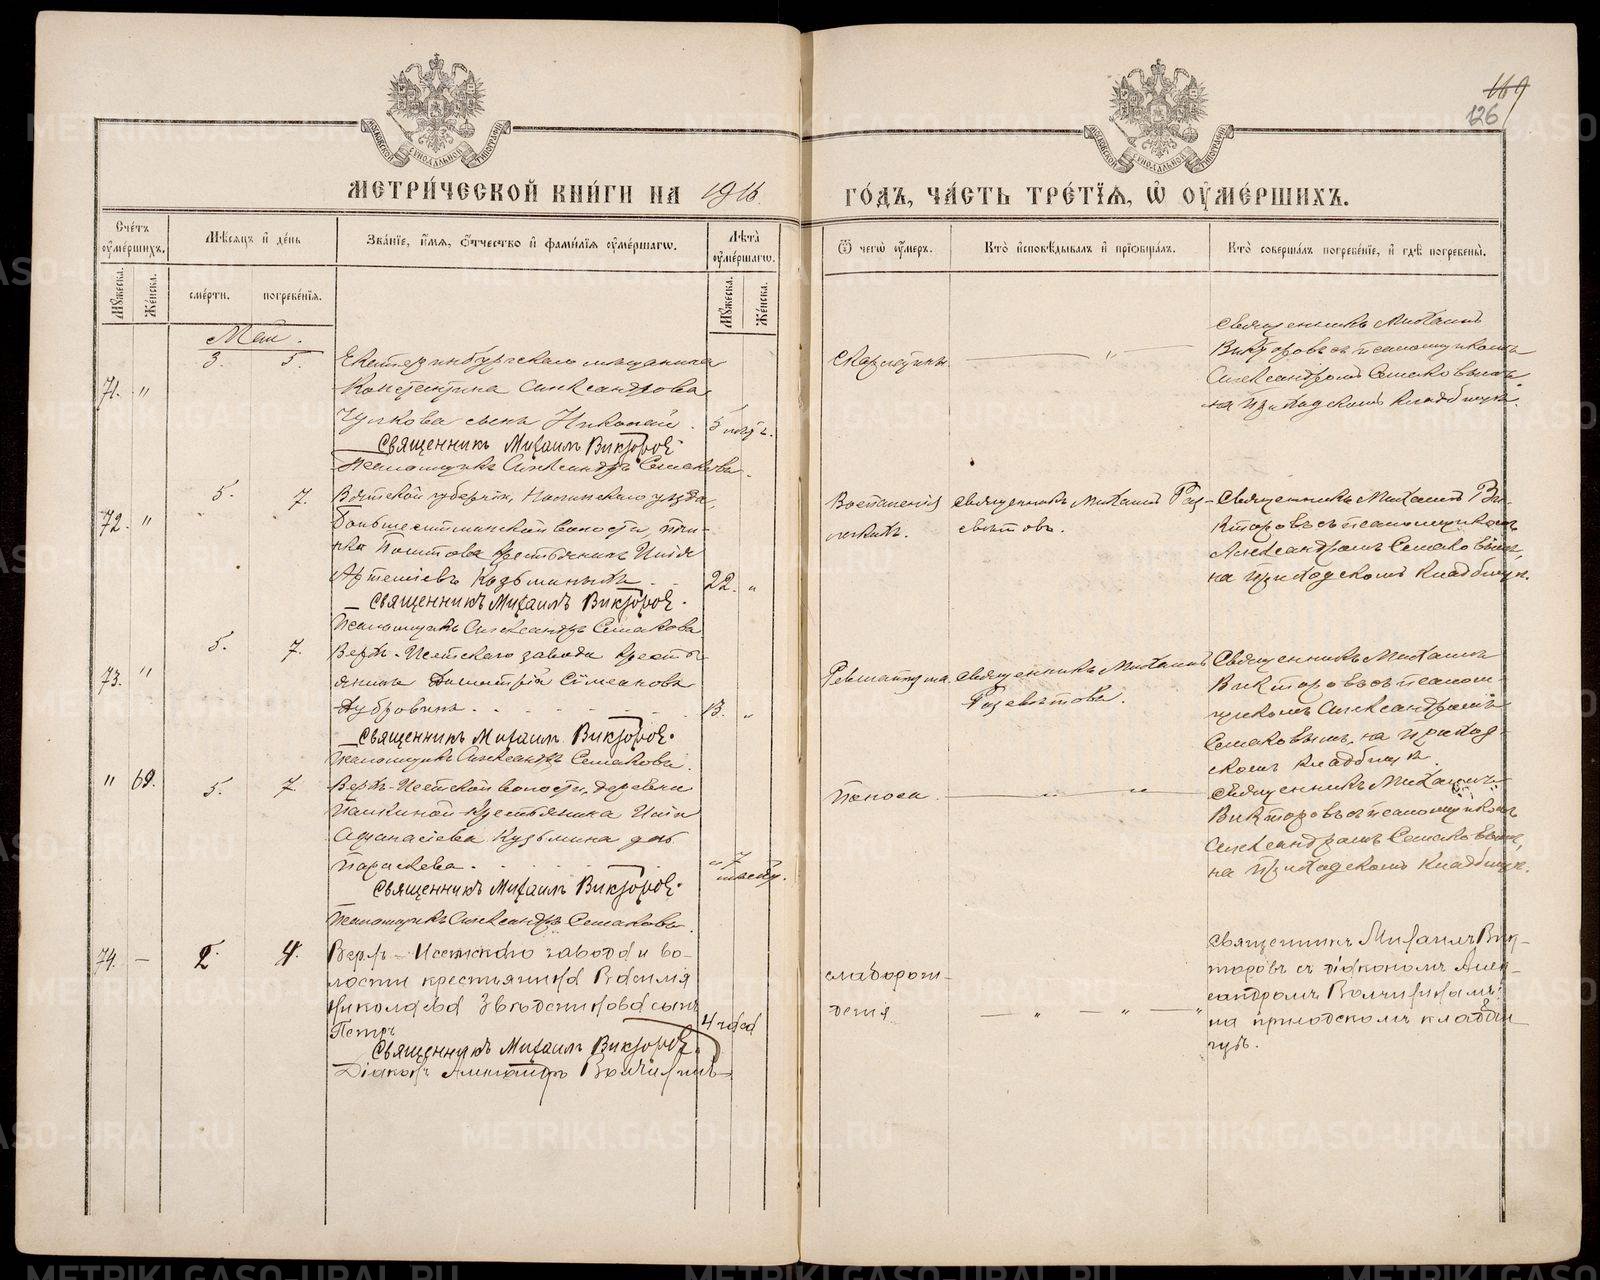 169
126
МОСКОВСКОЙ СѴНОДАЛЬНОЙ ТИПОГРАФІИ
МОСКОВСКОЙ СѴНОДАЛЬНОЙ ТИПОГРАФІИ
МЕТРИ́ЧЕСКОЙ КНИ́ГИ НА 1916 ГО́ДЪ, ЧА́СТЬ ТРЕ́ТІЯ, Ѡ ОУМЕ́РШИХЪ.
Сче́тъ оуме́ршихъ.
Мѣ́сяцъ и де́нь
Зва́ніе, и́мя, о́тчество и фами́лія оуме́ршагѡ.
Лѣ́та оуме́ршагѡ.
Ѿ чегѡ̀ оу́меръ.
Кто̀ исповѣ́дывалъ и прїѡбща́лъ.
Кто̀ соверша́лъ погребе́ніе, и гдѣ̀ погребены̀.
Му́жеска. Же́нска. сме́рти. погребе́нія. Му́жеска. Же́нска.
Май.
71. " 3. 5.
Екатеринбургскаго мѣщанина
Константина Александрова
Чулкова сынъ Николай. 5 
Священникъ Михаилъ Викторовъ.
Псаломщикъ Александръ Семакова
Скарлатины. — " —
Священникъ Михаилъ
Викторовъ съ псаломщикомъ
Александромъ Семаковымъ
на приходскомъ кладбищѣ.
72. " 5. 7.
Вятской губерніи, Нолинскаго уѣзда,
волости, почи-
нка крестьянинъ Илія
Артеміевъ Козьминыхъ 22. "
Священникъ Михаилъ Викторовъ.
Псаломщикъ Александръ Семакова
Воспаленія
легкихъ.
Священникъ Михаилъ Раз-
свѣтовъ.
Священникъ Михаилъ Ви-
кторовъ съ псаломщикомъ
Александромъ Семаковымъ,
на приходскомъ кладбищѣ.
73. " 5. 7.
Верхъ-Исетскаго завода кресть-
янинъ Димитрій Сѵмеоновъ
Дубровинъ 13. "
Священникъ Михаилъ Викторовъ.
Псаломщикъ Александръ Семакова.
Ревматизма.
Священникъ Михаилъ
Разсвѣтовъ.
Священникъ Михаилъ
Викторовъ съ псалом-
щикомъ Александромъ
Семаковымъ, на приход-
скомъ кладбищѣ.
" 69. 5. 7.
Верхъ-Исетской волости, деревни
Палкиной крестьянина Иліи
Афанасіева Кузьмина дочь
Параскева. " 7 мѣсяц.
Священникъ Михаилъ Викторовъ.
Псаломщикъ Александръ Семакова.
Поноса. — " "
Священникъ Михаилъ
Викторовъ съ псаломщикомъ
Александромъ Семаковымъ,
на приходскомъ кладбищѣ.
74. — 2. 4.
Верхъ-Исетскаго завода и во-
лости крестьянина Василія
Николаева Звѣздотикова сынъ
Петръ 4 
Священникъ Михаилъ Викторовъ.
Діаконъ Александръ
слаборож-
денія
— " — " — "
Священникъ Михаилъ Вик-
торовъ съ діакономъ Алек-
сандромъ
на приходскомъ кладби-
щѣ.